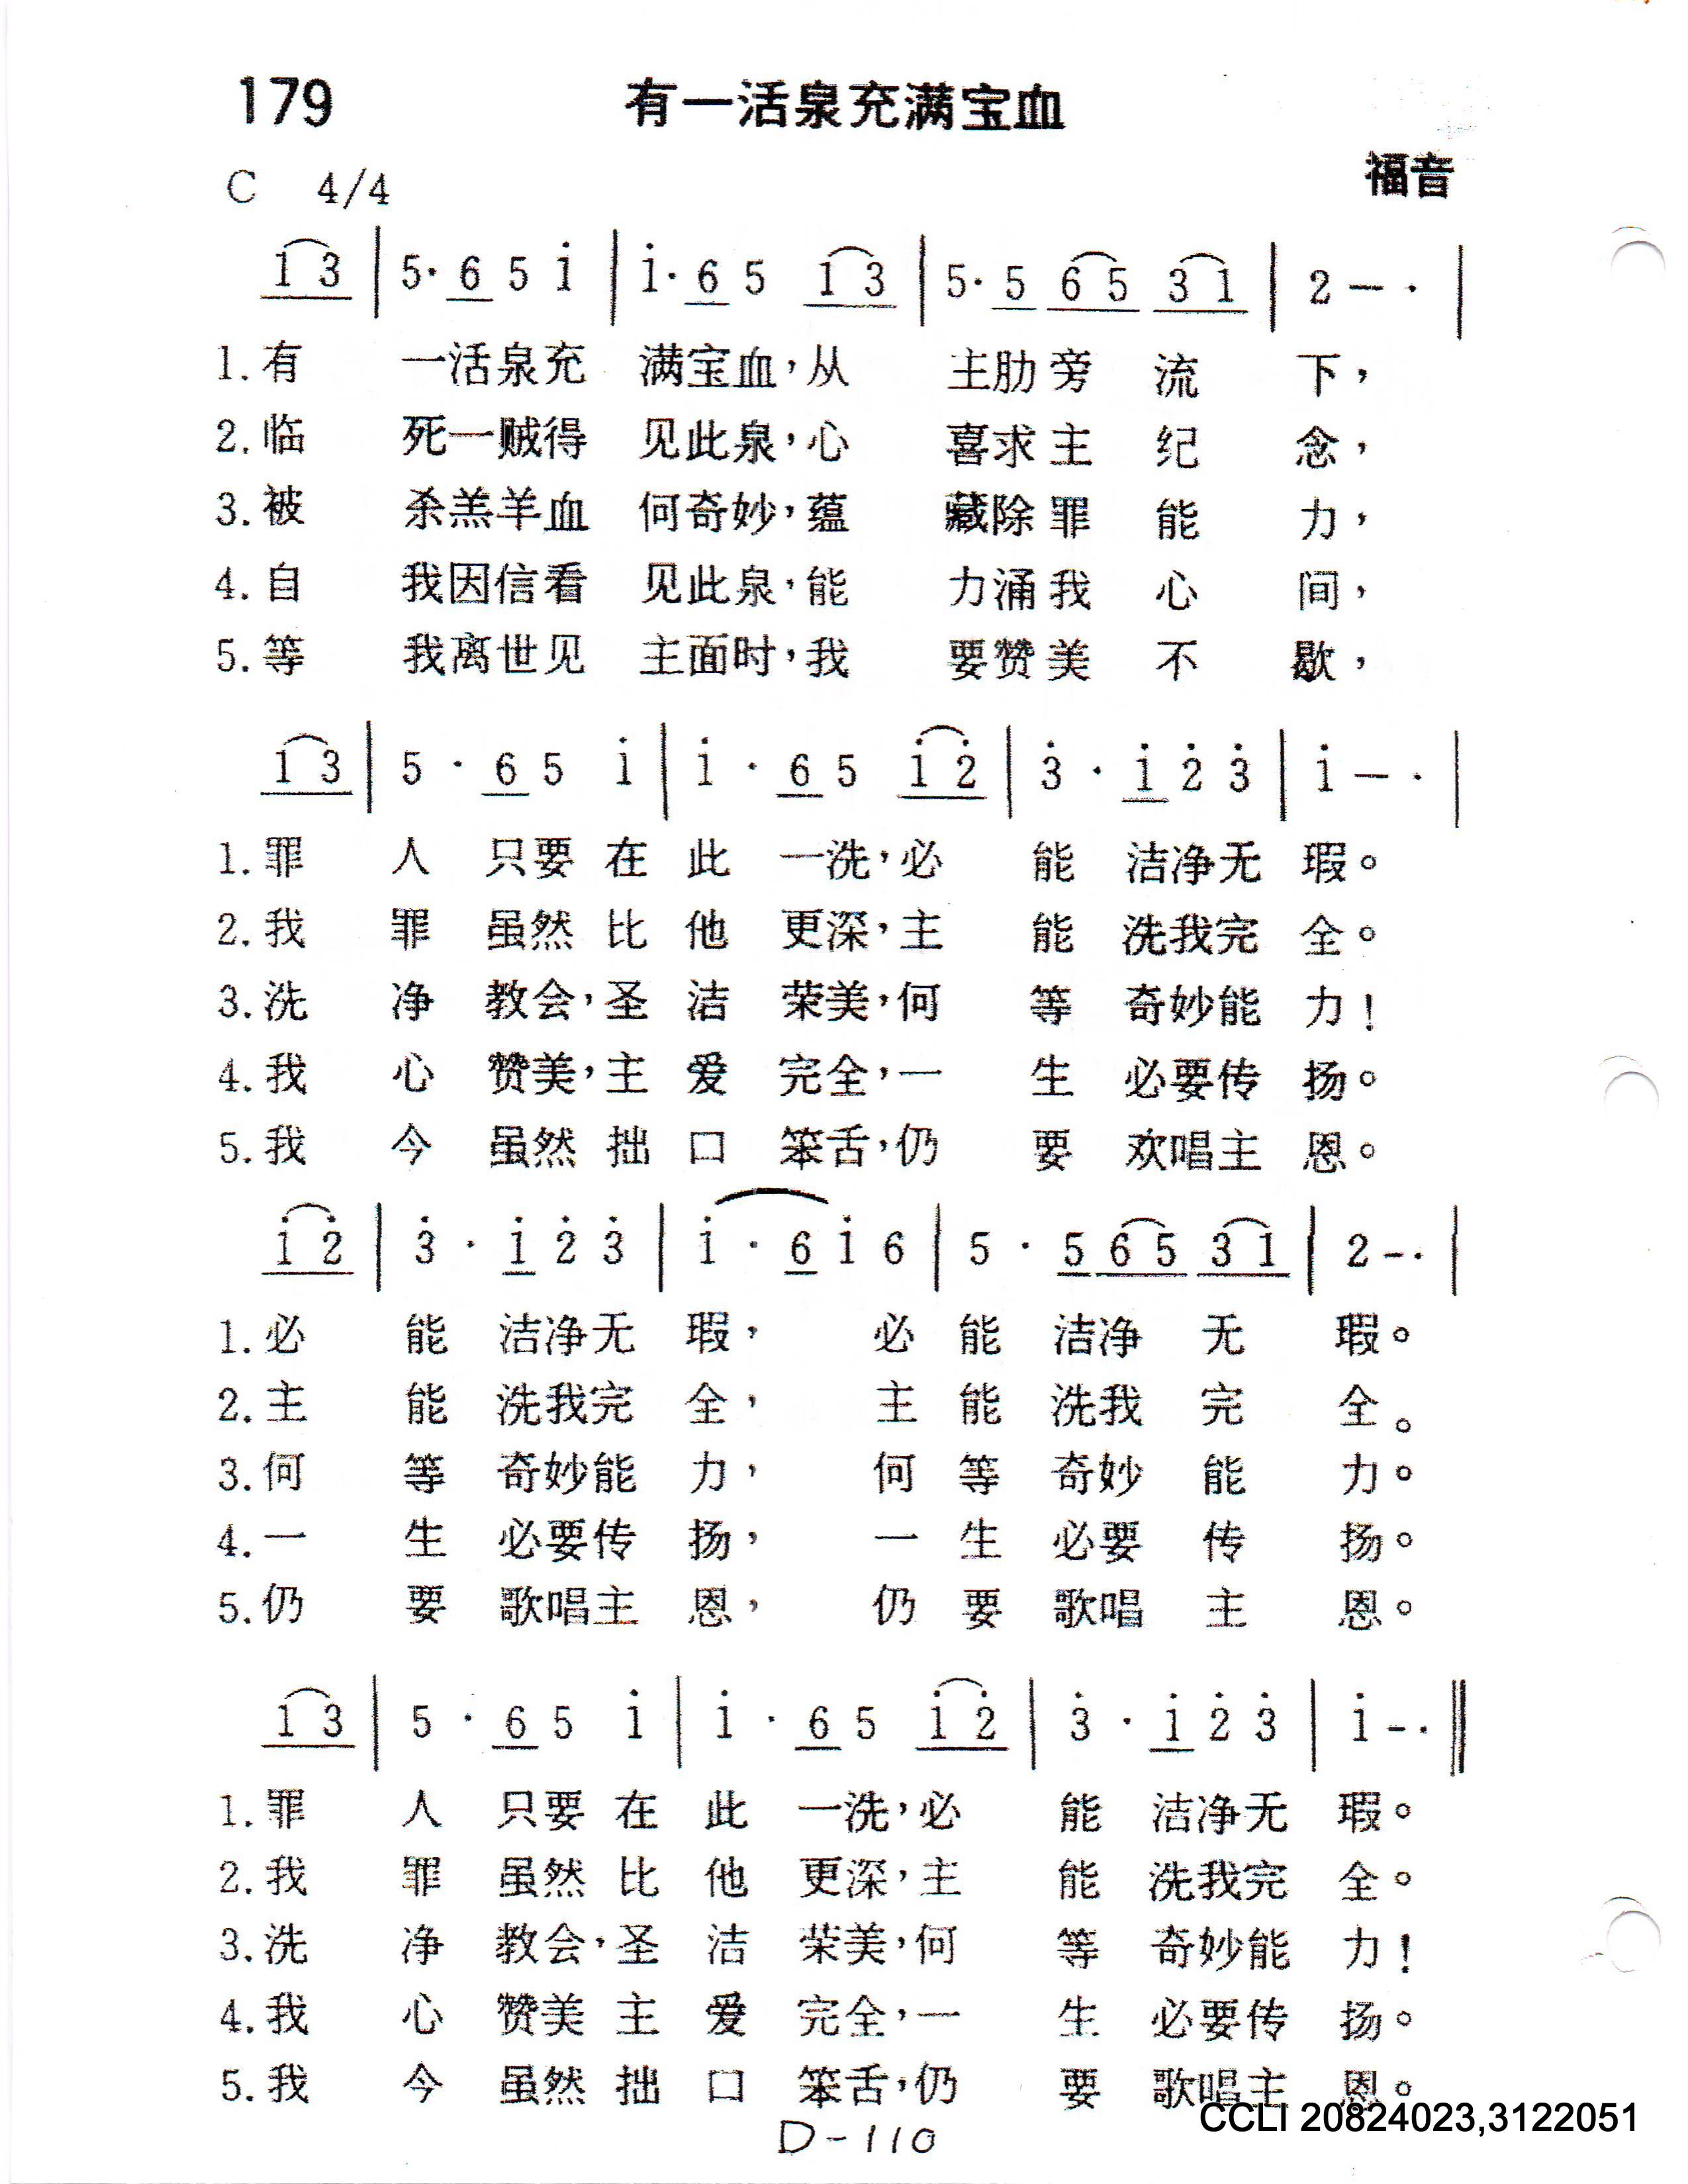 179 有一活泉充满宝血
福音
C 4/4
1 3 | 5· 6 5 i | i· 6 5 1 3 | 5· 5 6 5 3 1 | 2 — · |
1.有 一活泉充 满宝血,从 主肋旁 流 下,
2.临 死一贼得 见此泉,心 喜求主 纪 念,
3.被 杀羔羊血 何奇妙,蕴 藏除罪 能 力,
4.自 我因信看 见此泉,能 力涌我 心 间,
5.等 我离世见 主面时,我 要赞美 不 歇,
1 3 | 5 · 6 5 i | i · 6 5 i 2̇ | 3̇ · i 2̇ 3̇ | i — · |
1.罪 人 只要 在 此 一洗,必 能 洁净无 瑕。
2.我 罪 虽然 比 他 更深,主 能 洗我完 全。
3.洗 净 教会,圣 洁 荣美,何 等 奇妙能 力!
4.我 心 赞美,主 爱 完全,一 生 必要传 扬。
5.我 今 虽然 拙 口 笨舌,仍 要 欢唱主 恩。
i 2̇ | 3̇ · i 2̇ 3̇ | i · 6 i 6 | 5 · 5 6 5 3 1 | 2 – · |
1.必 能 洁净无 瑕, 必 能 洁净 无 瑕。
2.主 能 洗我完 全, 主 能 洗我 完 全。
3.何 等 奇妙能 力, 何 等 奇妙 能 力。
4.一 生 必要传 扬, 一 生 必要 传 扬。
5.仍 要 歌唱主 恩, 仍 要 歌唱 主 恩。
1 3 | 5 · 6 5 i | i · 6 5 i 2̇ | 3̇ · i 2̇ 3̇ | i – · ‖
1.罪 人 只要 在 此 一洗,必 能 洁净无 瑕。
2.我 罪 虽然 比 他 更深,主 能 洗我完 全。
3.洗 净 教会,圣 洁 荣美,何 等 奇妙能 力!
4.我 心 赞美 主 爱 完全,一 生 必要传 扬。
5.我 今 虽然 拙 口 笨舌,仍 要 歌唱主 恩。
CCLI 20824023,3122051
D-110